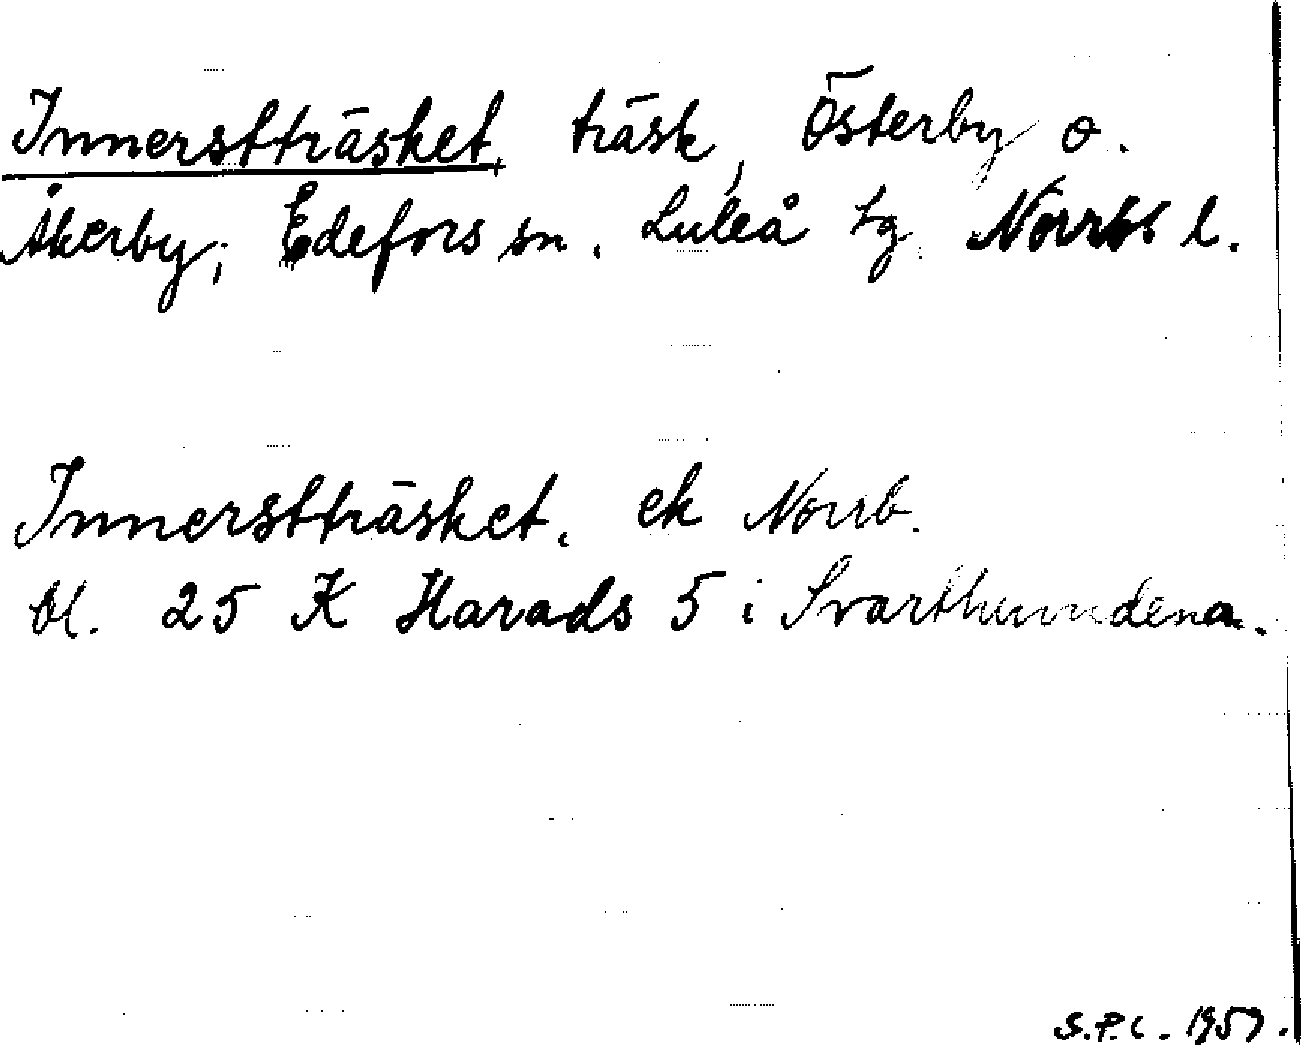 Innerstträsket, träsk, Österby o.
Åkerby, Edefors sn. Luleå tg. Norrb. l.
Innerstträsket. ek Norrb.
bl. 25 K Harads 5 i Svarthundena.
S.P.C. 1959.